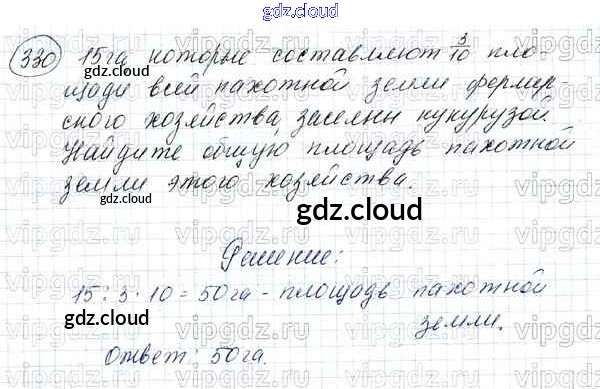 gdz.cloud
330 15га которые составляют 3/10 пло-
gdz.cloud
щади всей пахотной земли фермер-
ского хозяйства, засеяны кукурузой.
Найдите общую площадь пахотной
gdz.cloud
земли этого хозяйства.
gdz.cloud
gdz.cloud
Решение:
15:3·10=50га - площадь пахотной
gdz.cloud
земли.
Ответ: 50га.
gdz.cloud